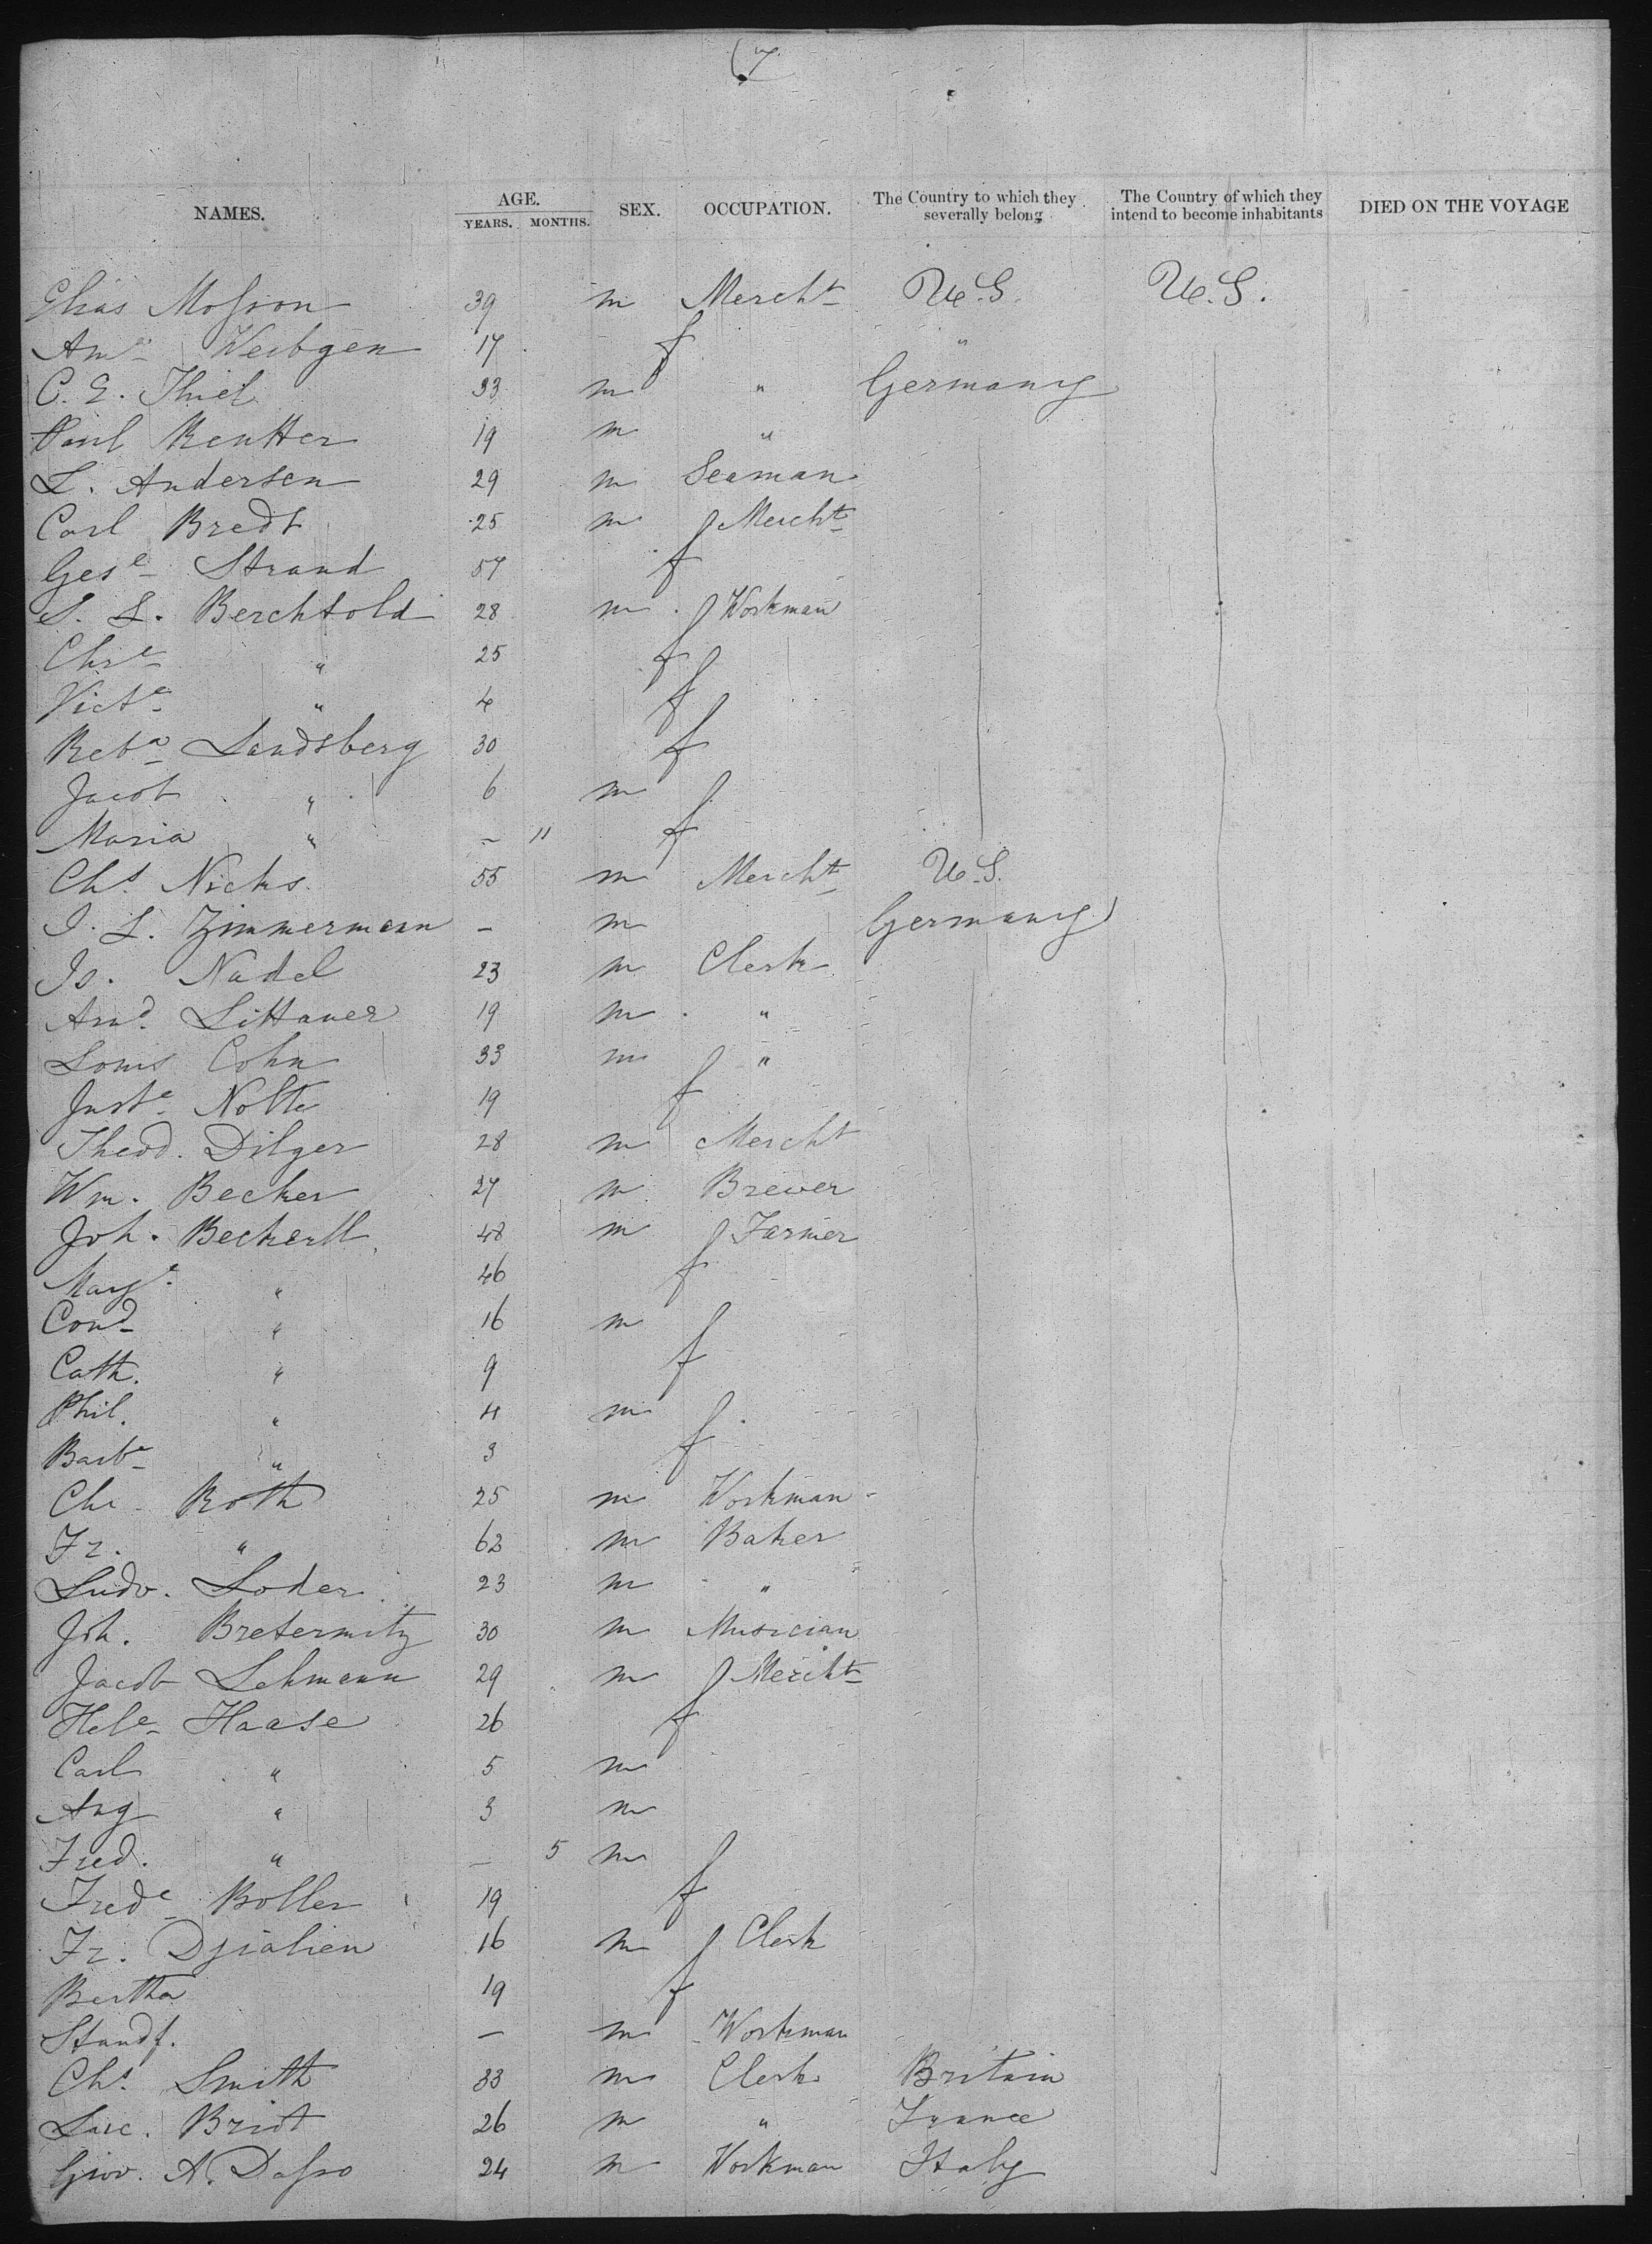 (7
NAMES. AGE. YEARS. MONTHS. SEX. OCCUPATION. The Country to which they severally belong The Country of which they intend to become inhabitants DIED ON THE VOYAGE
Elias Mosson 39 m Mercht U.S. U.S.
Ame Weibgen 17 f "
C. E. Thiel 33 m " Germany
Paul Reutter 19 m "
L. Andersen 29 m Seaman
Carl Bredt 25 m Mercht
Gese Strand 57 f
S. L. Berchtold 28 m Workman
Chre " 25 f
Victe " 4 f
Reba Landsberg 30 f
Jacob " 6 m
Maria " – 11 f
Chs. Nicks 55 m Mercht U.S.
I. L. Zimmermann – m Germany
Is. Nadel 23 m Clerk
Arnd. Littauer 19 m "
Louis Cohn 33 m "
Juste Nolte 19 f
Theod. Dilger 28 m Mercht
Wm. Becker 27 m Brewer
Joh. Beckertt 48 m Farmer
Marge " 46 f
Cond " 16 m
Cath. " 9 f
Phil. " 4 m
Barbe " 3 f
Chr Roth 25 m Workman
Fr. " 62 m Baker
Ludv. Loder 23 m "
Joh. Breternitz 30 m Musician
Jacob Lehmann 29 m Mercht
Hele Haase 26 f
Carl " 5 m
Aug " 3 m
Fred. " – 5 m
Frede Boller 19 f
Fr. Djialien 16 m Clerk
Bertha 19 f
Standf. – m Workman
Chs. Smith 33 m Clerk Britain
Luc. Bridt 26 m " France
Giov. A. Dasso 24 m Workman Italy